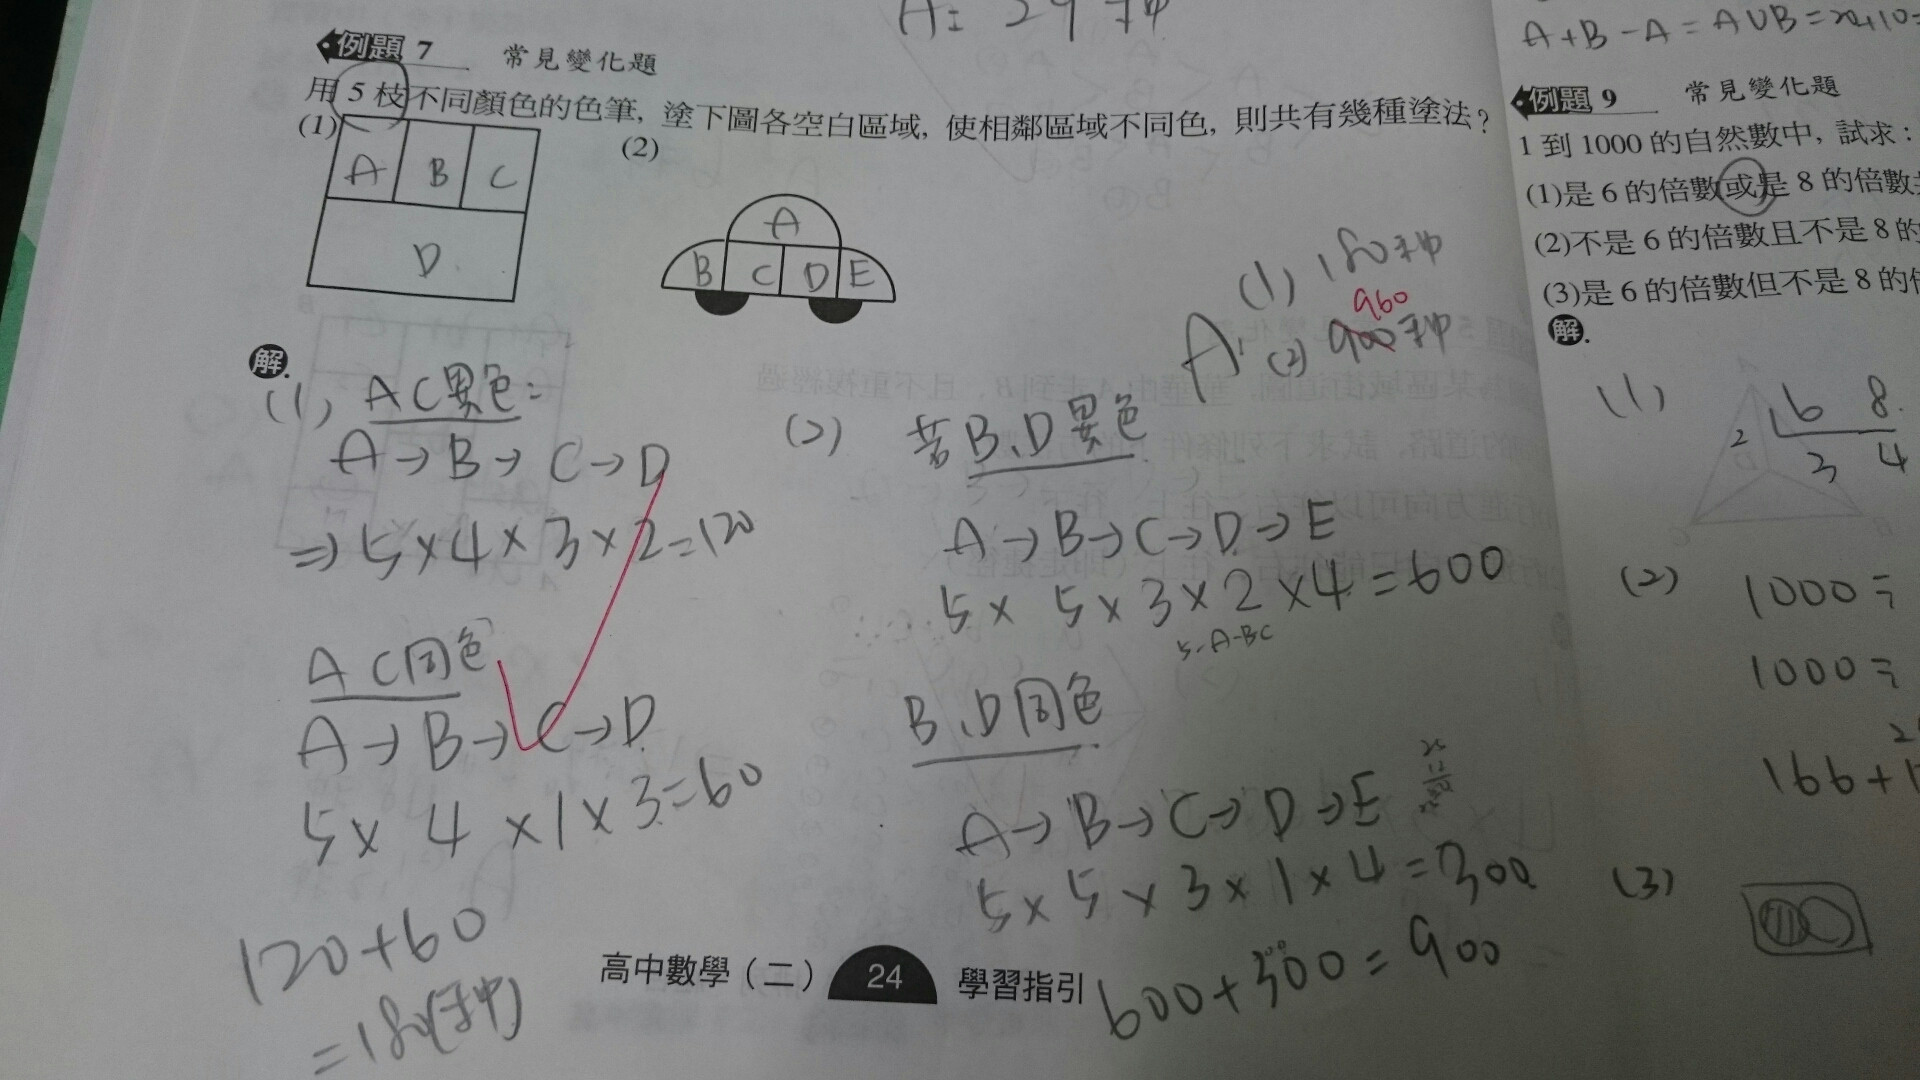 A: 29種
A+B-A=A∪B=
例題 7 常見變化題
用 5 枝不同顏色的色筆, 塗下圖各空白區域, 使相鄰區域不同色, 則共有幾種塗法?
(1)
A B C
D
(2)
A
B C D E
(1) 180種
960
A: (2) 900種
解.
(1) AC異色:
A→B→C→D
⇒5×4×3×2=120
AC同色
A→B→C→D
5×4×1×3=60
120+60
=180(種)
(2) 若B、D異色
A→B→C→D→E
5×5×3×2×4=600
5-A-BC
B、D同色
A→B→C→D→E
5×5×3×1×4=300
600+300=900
高中數學(二) 24 學習指引
例題 9 常見變化題
1 到 1000 的自然數中, 試求:
(1)是 6 的倍數或是 8 的倍數
(2)不是 6 的倍數且不是 8 的
(3)是 6 的倍數但不是 8 的
解.
(1)
2 6 8
3 4
(2) 1000÷
1000÷
166+1
(3)